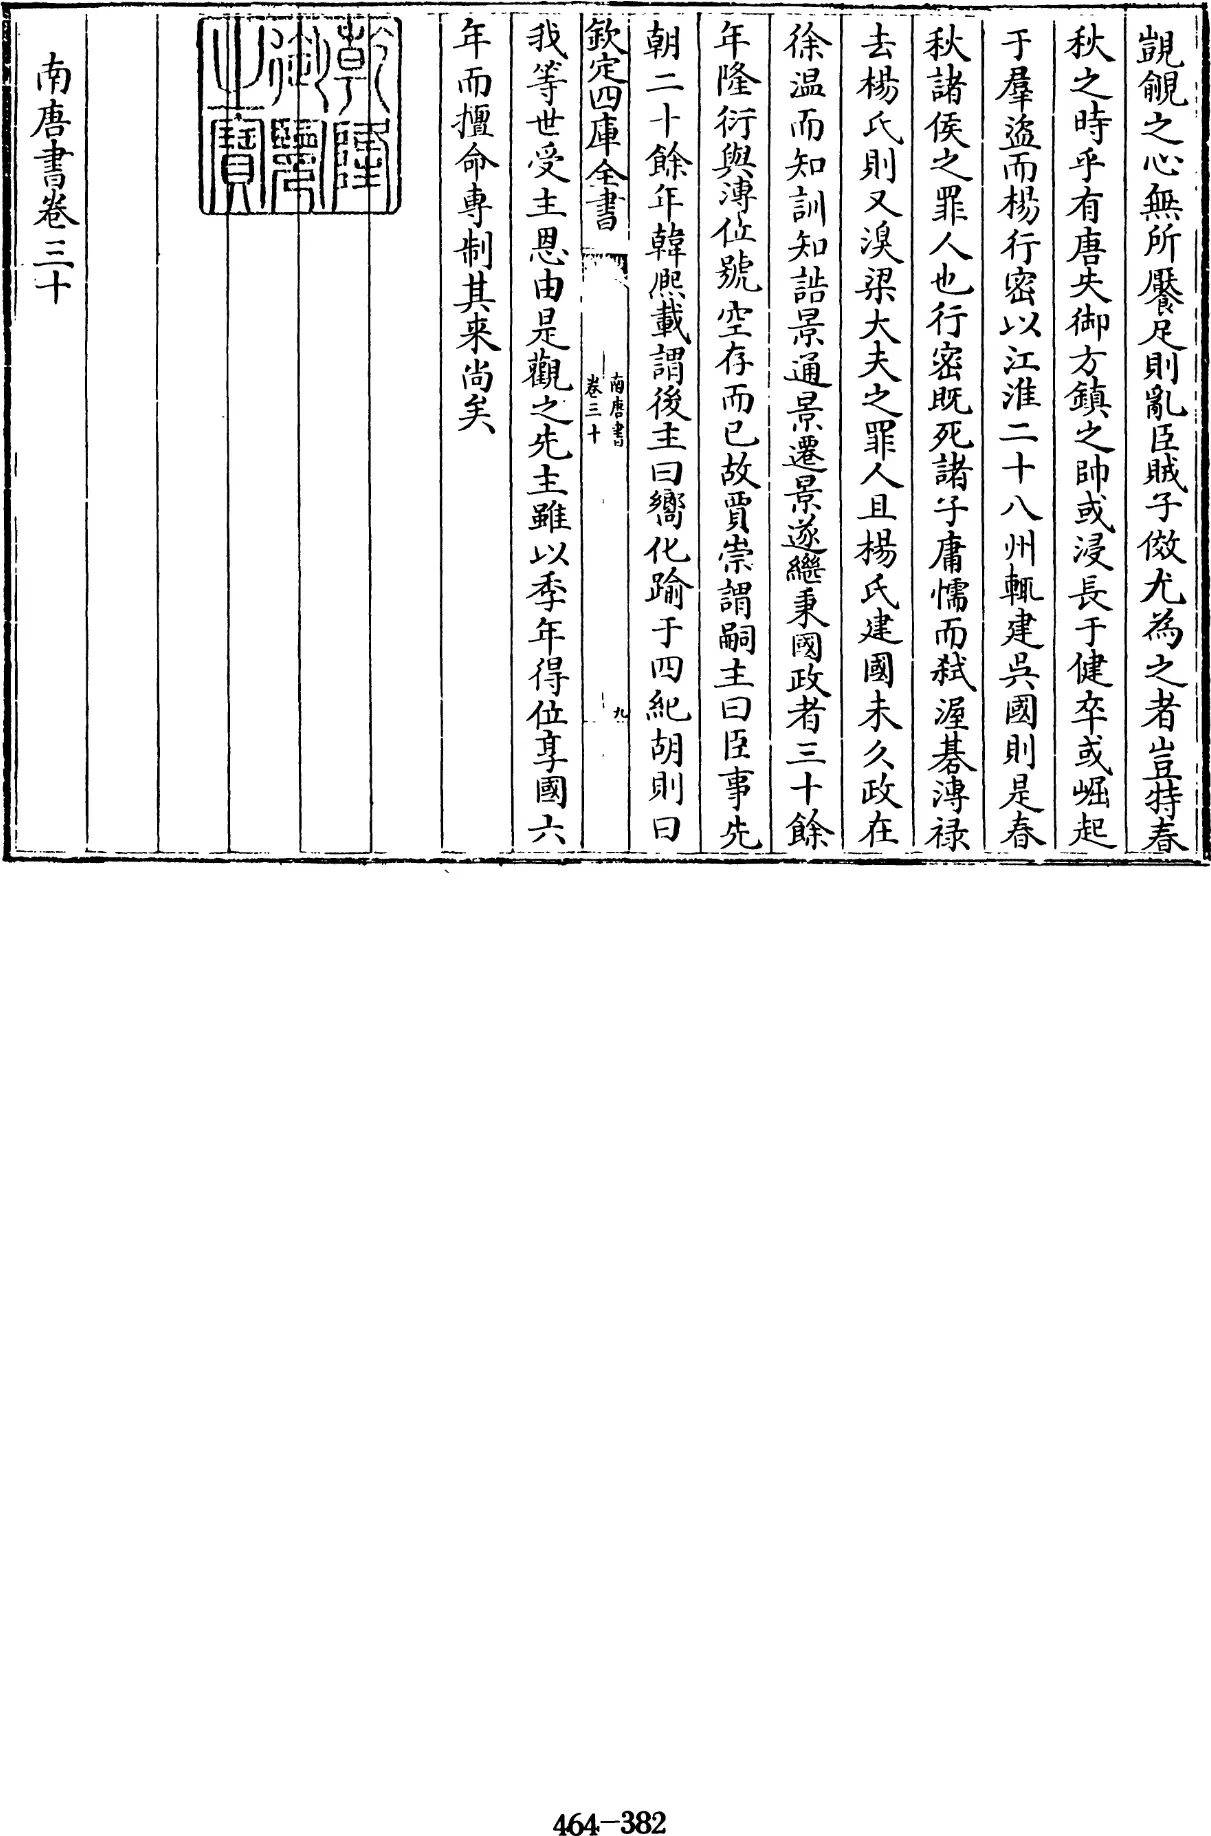 覬覦之心無所饜足則亂臣賊子傚尤為之者豈特春
秋之時乎有唐失御方鎮之帥或浸長于健卒或崛起
于羣盜而楊行密以江淮二十八州輒建吳國則是春
秋諸侯之罪人也行密既死諸子庸懦而弑渥碁溥禄
去楊氏則又湨梁大夫之罪人且楊氏建國未久政在
徐温而知訓知誥景通景遷景遂繼秉國政者三十餘
年隆衍與溥位號空存而已故賈崇謂嗣主曰臣事先
朝二十餘年韓熈載謂後主曰嚮化踰于四紀胡則曰
欽定四庫全書
南唐書
卷三十
九
我等世受主恩由是觀之先主雖以季年得位享國六
年而擅命專制其来尚矣
乾隆御覽之寶
南唐書卷三十
464-382